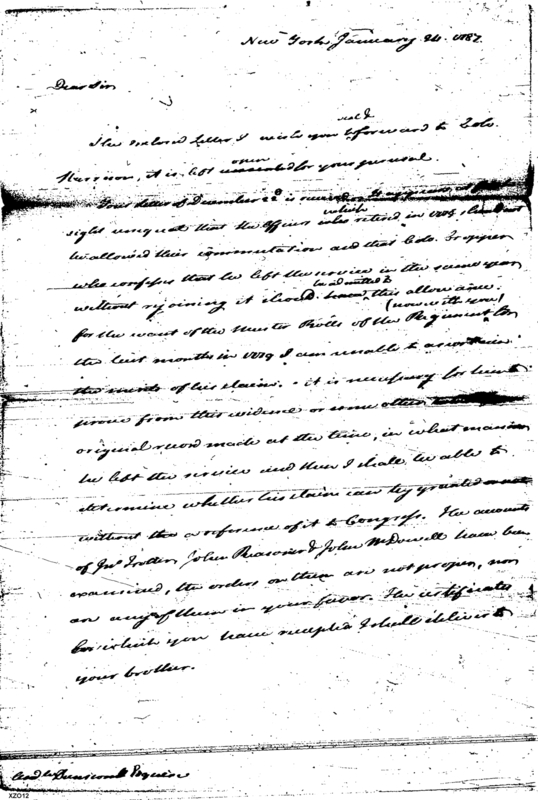 New York January 24. 1787.
Dear Sir
The enclosed Letter I wish you to seal & forward to Colo.
Harrison, it is left open for your perusal.
Your letter of December 22d is received. at first
sight unequal that the Officers who retired in 1779, should not
be allowed their commutation and that Colo. Cropper
who confesses that he left the service in the same year
without rejoining it should be admitted to this allowance.
for the want of the Muster Rolls of the Regiment (now with you) for
the last months in 1779 I am unable to ascertain
the merits of his claim. it is necessary for him to
prove from this evidence or some other
original record made at the time, in what manner
he left the service and then I shall be able to
determine whether his claim can be granted or not
without the a reference of it to Congress. The accounts
of Jno. Trotter, John Reasoner & John McDowell have been
examined, the orders on them are not proper, nor
are any of them in your favor. The certificates
for which you have receipted I shall deliver to
your brother.
Andw Dunscomb Esquire
XZO12